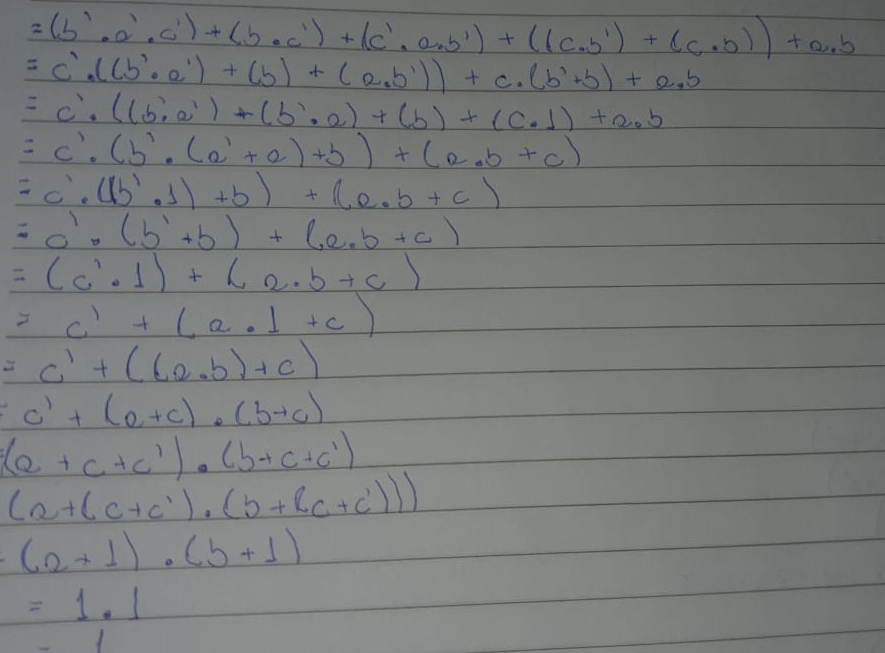 =(b'.a'.c')+(b.c')+(c'.a.b')+((c.b')+(c.b))+a.b
= c'.((b'.a')+(b)+(a.b'))+c.(b'+b)+a.b
= c'.((b'.a')+(b'.a)+(b)+(c.1)+a.b
= c'.(b'.(a'+a)+b)+(a.b+c)
= c'.((b'.1)+b)+(a.b+c)
= c'.(b'+b)+(a.b+c)
= (c'.1)+(a.b+c)
= c'+(a.1+c)
= c'+((a.b)+c)
= c'+(a+c).(b+c)
=(a+c+c').(b+c+c')
(a+(c+c').(b+(c+c')))
-(a+1).(b+1)
= 1.1
= 1